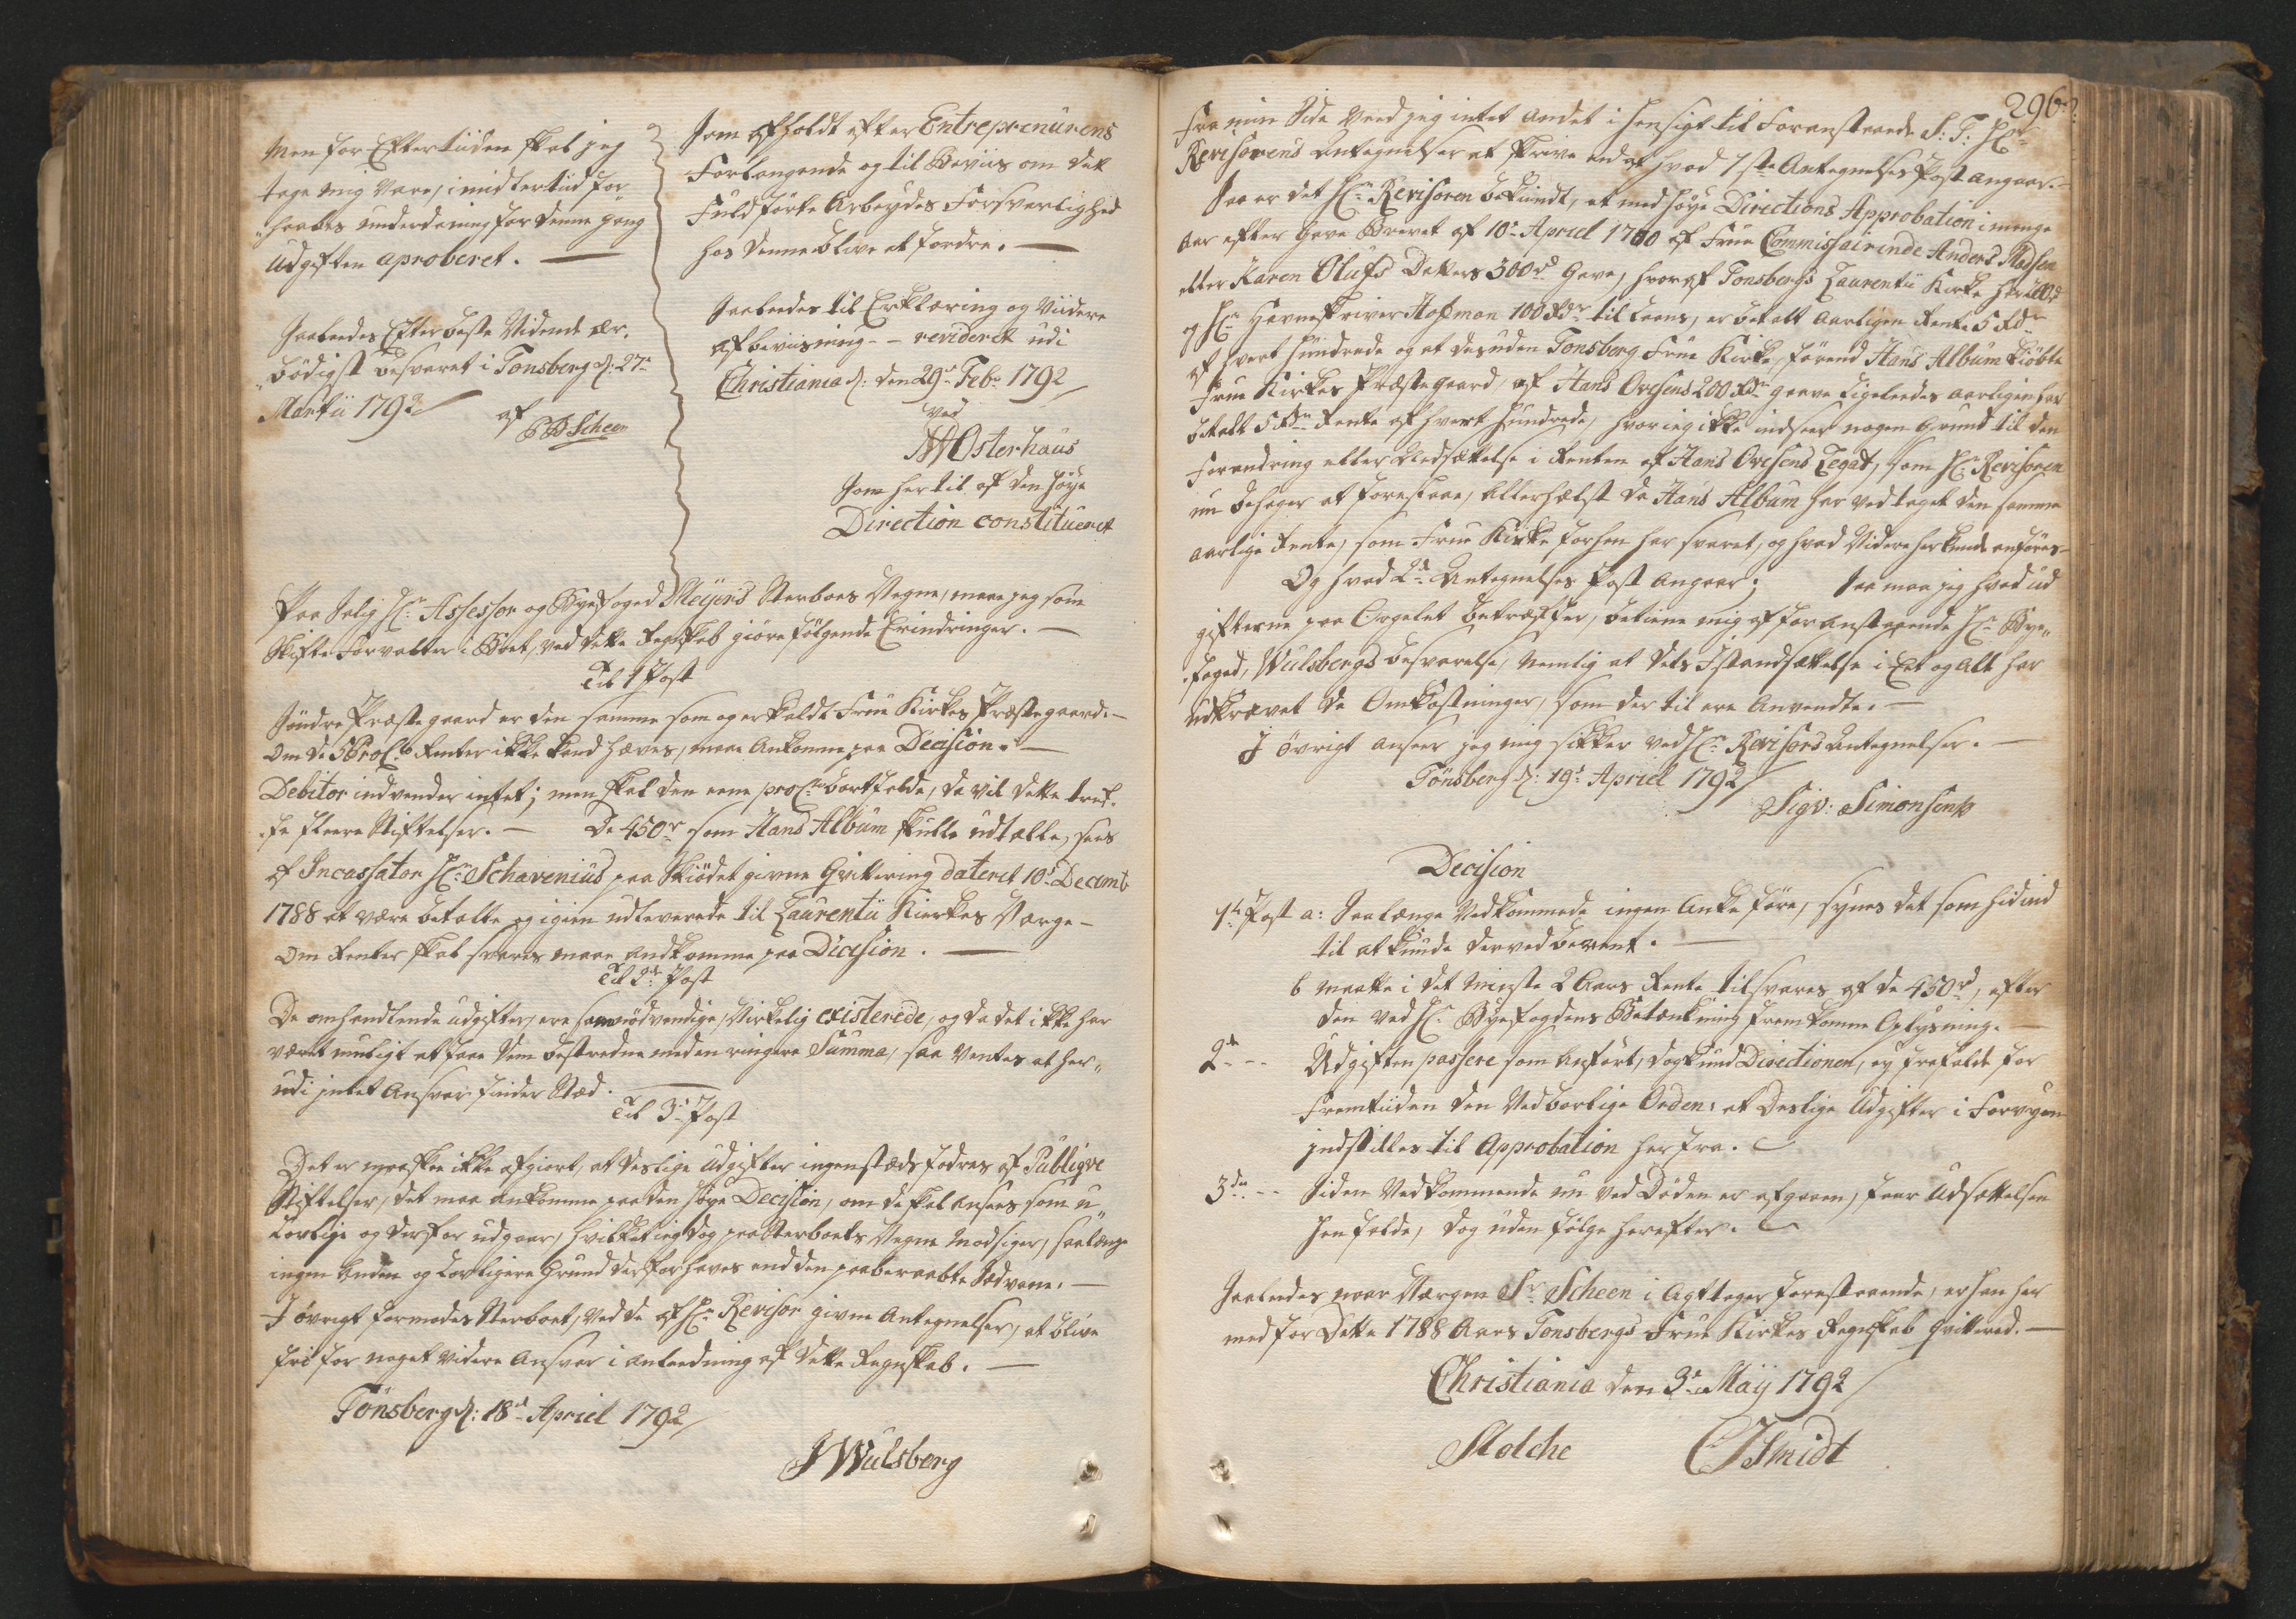 Men for Eftertiiden skal jeg
tage mig Vare, imidlertiid for¬
„haabes underdanig for denne gang
Udgiften aproberet. —
Saaledes Efter beste Vidende ær¬
„bödigst besvaret i Tonsberg d: 27de
Martii 1792
af
P B Scheen
Som afholdt efter Entreprenurens
Forlangende og til Beviis om det
Fuldförte Arbeydes Forsvarlighed
hos denne blive at fordre. —
Saaledes til Erklæring og Viidere
afbeviisning - - revideret udi
Christiania d: den 29de Febr 1792
ved
Osterhaus
Som hertil af den höye
Direction constitueret
Paa Salig Hr Assessor og Byefoged Meyers Sterboes Vegne, maae jeg som
Skifte Forvalter i Boet, ved dette Regnskab giöre fölgende Erindringer. —
Til 1 Post
Söndre Præstegaard er den samme som og er kaldt Frue Kirkes Præstegaard. —
Om de 5 Pro Ct Renter ikke kand hæves, maae ankomme paa Decision. —
Debitor indvender intet; men skal den eene pro Cto bortfalde, da vil dette tref¬
„fe fleere Stiftelser. — De 450 rd som Hans Album skulle udtælle, sees
af Incassator Hr Schavenius paa Skiödet givne Qvittering dateret 10de Decemb
1788 at være betalte og igien udleverede til Laurentii Kierkes Værge —
Om Renter skal svares maae andkomme paa Dicision. —
Til 2de Post
De omhandlende udgifter, ere saa nödvendige, Virkelig existerede, og da det ikke har
været muligt at faae dem bestredne med en ringere Summa, saa ventes at her„
udi intet Ansvar finder Stæd. —
Til 3die Post
Det er maaskee ikke afgiort, at deslige Udgifter ingenstæds fodres af Publiqve
Stiftelser, det maa ankomme paa den höye Decision, om de skal ansees som u„
Lovlige og derfor udgaae, hvilket ieg dog paa Sterboets Vegne modsiger, saalænge
ingen anden og Lovligere Grund derfor haves end den paaberaabte Sædvane. —
I övrigt formodes Sterboet, ved de af Hr Revisor givne Antegnelser, at blive
frie for noget videre Ansvar i anledning af dette Regnskab. —
Tönsberg d: 18de Apriel 1792
J Wulsberg
296.
Fra min Side veed jeg intet andet i henseigt til Foranstaaende S: T: Hr
Revisorens Antegnelser at skrive end at hvad 1ste Antegnelses Post angaar. —
Saa er det Hr Revisoren bekiendt, at med höye Directions Approbation i mange
Aar efter Gave Brevet af 10de Apriel 1700 af Frue Commissairinde Anders Madsen
eller Karen Olufs Datters 300 rd Gave, hvoraf Tonsbergs Laurentii Kirke har 200 rd
og Hr Havneskriver Hofman 100 Rdr til Laans, er betalt aarligen Rente 5 Rdr
af hvert hundrede og at desuden Tonsberg Frue Kirke, förend Hans Album kiöbte
Frue Kirkes Præstegaard, af Hans Ovesens 200 Rdr Gave ligeledes aarligen har
betalt 5 Rdr Rente af hvert hundrede, hvor ieg ikke indseer nogen Grund til den
Forandring eller Nedsættelse i Renten af Hans Ovesens Legat, som Hr Revisoren
nu behager at foreslaae, allerhælst da Hans Album har vedtaget den samme
aarlige Rente, som Frue Kirke forhen har svaret, og hvad Videre her kunde anföres
Og hvad 2de Antegnelses Post angaar; Saa maa jeg hvad ud
gifterne paa Orgelet betræffer, betiene mig af foranstaaende Hr Bye„
„foged, Wulsbergs besvarelse, nemlig at dets Istandsættelse i Eet og alt har
udkrævet de Omkostninger, som der til ere Anvendte. —
I övrigt anseer jeg mig sikker ved Hr Revisors Antegnelser. —
Tönsberg d: 19de Apriel 1792
Sigv: Simonsen
Decision
1ste Post a: Saalænge Vedkommende ingen Anke före, synes det som hid ind
til at kunde derved beroe. —
b maatte i det mindste 2 Aars Rente tilsvares af de 450 rd, efter
den ved Hr Byefogdens Betænkning fremkomne Oplysning. —
2de - - Udgiften passere som anfört, dog kand Directionen, ey frafalde for
Fremtiiden den Vedbørlige Orden: at deslige Udgifter i Forveyen
indstilles til Approbation herfra.
3die - - Siden Vedkommende nu ved Döden er afgaaen, faar Udsættelsen
henfalde, dog uden fölge herefter.
Saaledes naar Værgen Sr Scheen i Agttager forestaaende, er han her
med for dette 1788 Aars Tonsbergs Frue Kirkes Regnskab Qvitteret. —
Christiania den 3de Maij 1792
Moltke C Smidt